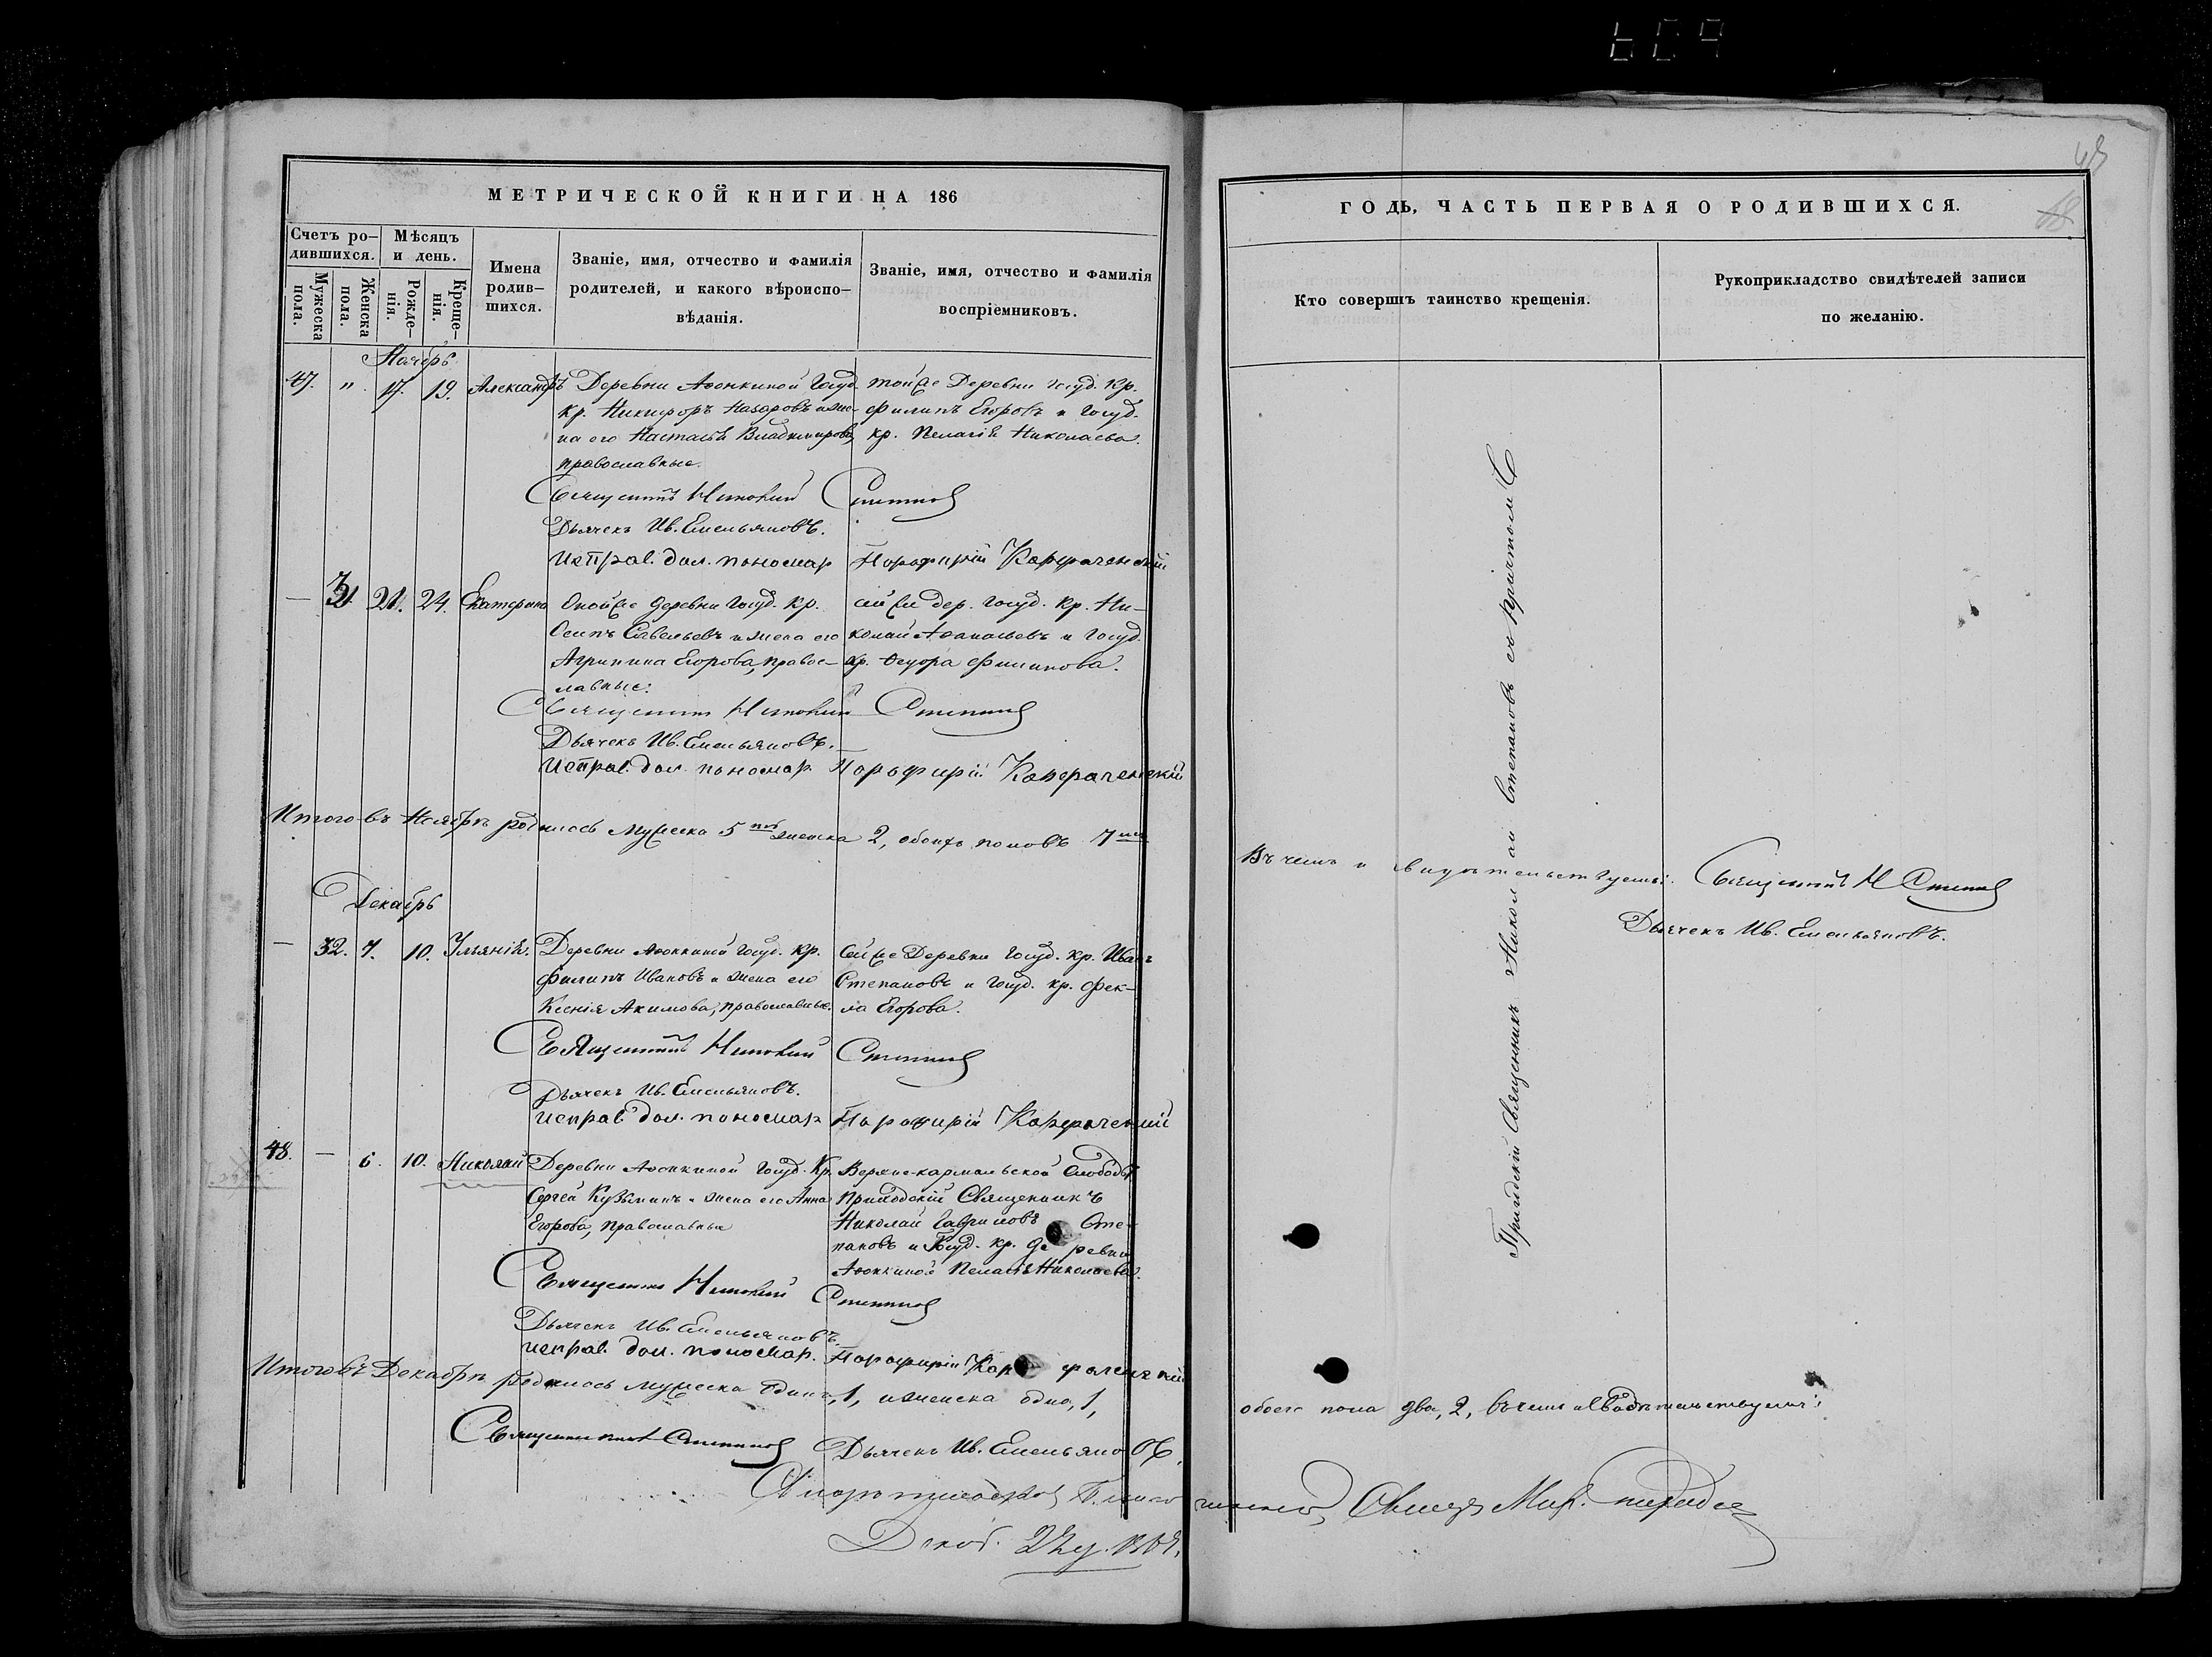 МЕТРИЧЕСКОЙ КНИГИ НА 186
Счетъ ро-
дившихся.
Мѣсяцъ
и день.
Мужеска
пола.
Женска
пола.
Рожде-
нія.
Креще-
нія.
Имена
родив-
шихся.
Званіе, имя, отчество и фамилія
родителей, и какого вѣроиспо-
вѣданія.
Званіе, имя, отчество и фамилія
воспріемниковъ.
Ноябрь
47. " 17. 19. Александръ
Деревни Аѳонкиной Госуд.
кр. Никифоръ Назаровъ и же-
на его Настасья Владимирова,
православные.
той же Деревни госуд. кр.
Филипъ Егоровъ и госуд.
кр. Пелагія Николаева.
Священникъ Николай Степановъ
Дьячекъ Ив. Емельяновъ.
Исправ. дол. пономар Порфирій
— 31. 21. 24. Екатерина
Оной же деревни Госуд. кр.
Осипъ Савельевъ и жена его
Агрипина Егорова, правос-
лавные.
сей же дер. госуд. кр. Ни-
колай Аѳанасьевъ и Госуд.
кр. Ѳедора Филипова.
Священникъ Николай Степановъ
Дьячекъ Ив. Емельяновъ.
Исправ. дол. пономар. Порфирій
Итого въ Ноябрѣ родилось мужеска 5 женска 2, обоихъ половъ 7
Декабрь
— 32. 7. 10. Ульянія.
Деревни Аѳонкиной госуд. кр.
Филипъ Ивановъ и жена его
Ксенія Акимова, православные.
Сей же Деревни Госуд. кр. Иванъ
Степановъ и госуд. кр. Фек-
ла Егорова.
Священникъ Николай Степановъ
Дьячекъ Ив. Емельяновъ.
исправ. дол. пономар Порфирій
48. — 6. 10. Николай
Деревни Аѳонкиной Госуд. Кр.
Сергей Кузьминъ и жена его Анна
Егорова, православные
Верхне-кармальской Слободы
приходскій Священникъ
Николай Гавриловъ Сте-
пановъ и Госуд. кр. деревни
Аѳонкиной Пелагія Николаева.
Священникъ Николай Степановъ
Дьячекъ Ив. Емельяновъ
исправ. дол. пономар. Порфирій
Итого въ Декабрѣ родилось мужеска одинъ, 1, и женска одна, 1,
Священникъ Степановъ Дьячекъ Ив. Емельяновъ,
Декаб.
ГОДЬ, ЧАСТЬ ПЕРВАЯ О РОДИВШИХСЯ.
Кто совершъ таинство крещенія.
Рукоприкладство свидѣтелей записи
по желанію.
Приходскій Священникъ Николай Степановъ съ причтомъ
Въ чемъ и свидѣтельствуемъ: Священникъ Н Степановъ
Дьячекъ Ив. Емельяновъ.
обоего пола два, 2, въ чемъ и свидѣтельствуемъ: